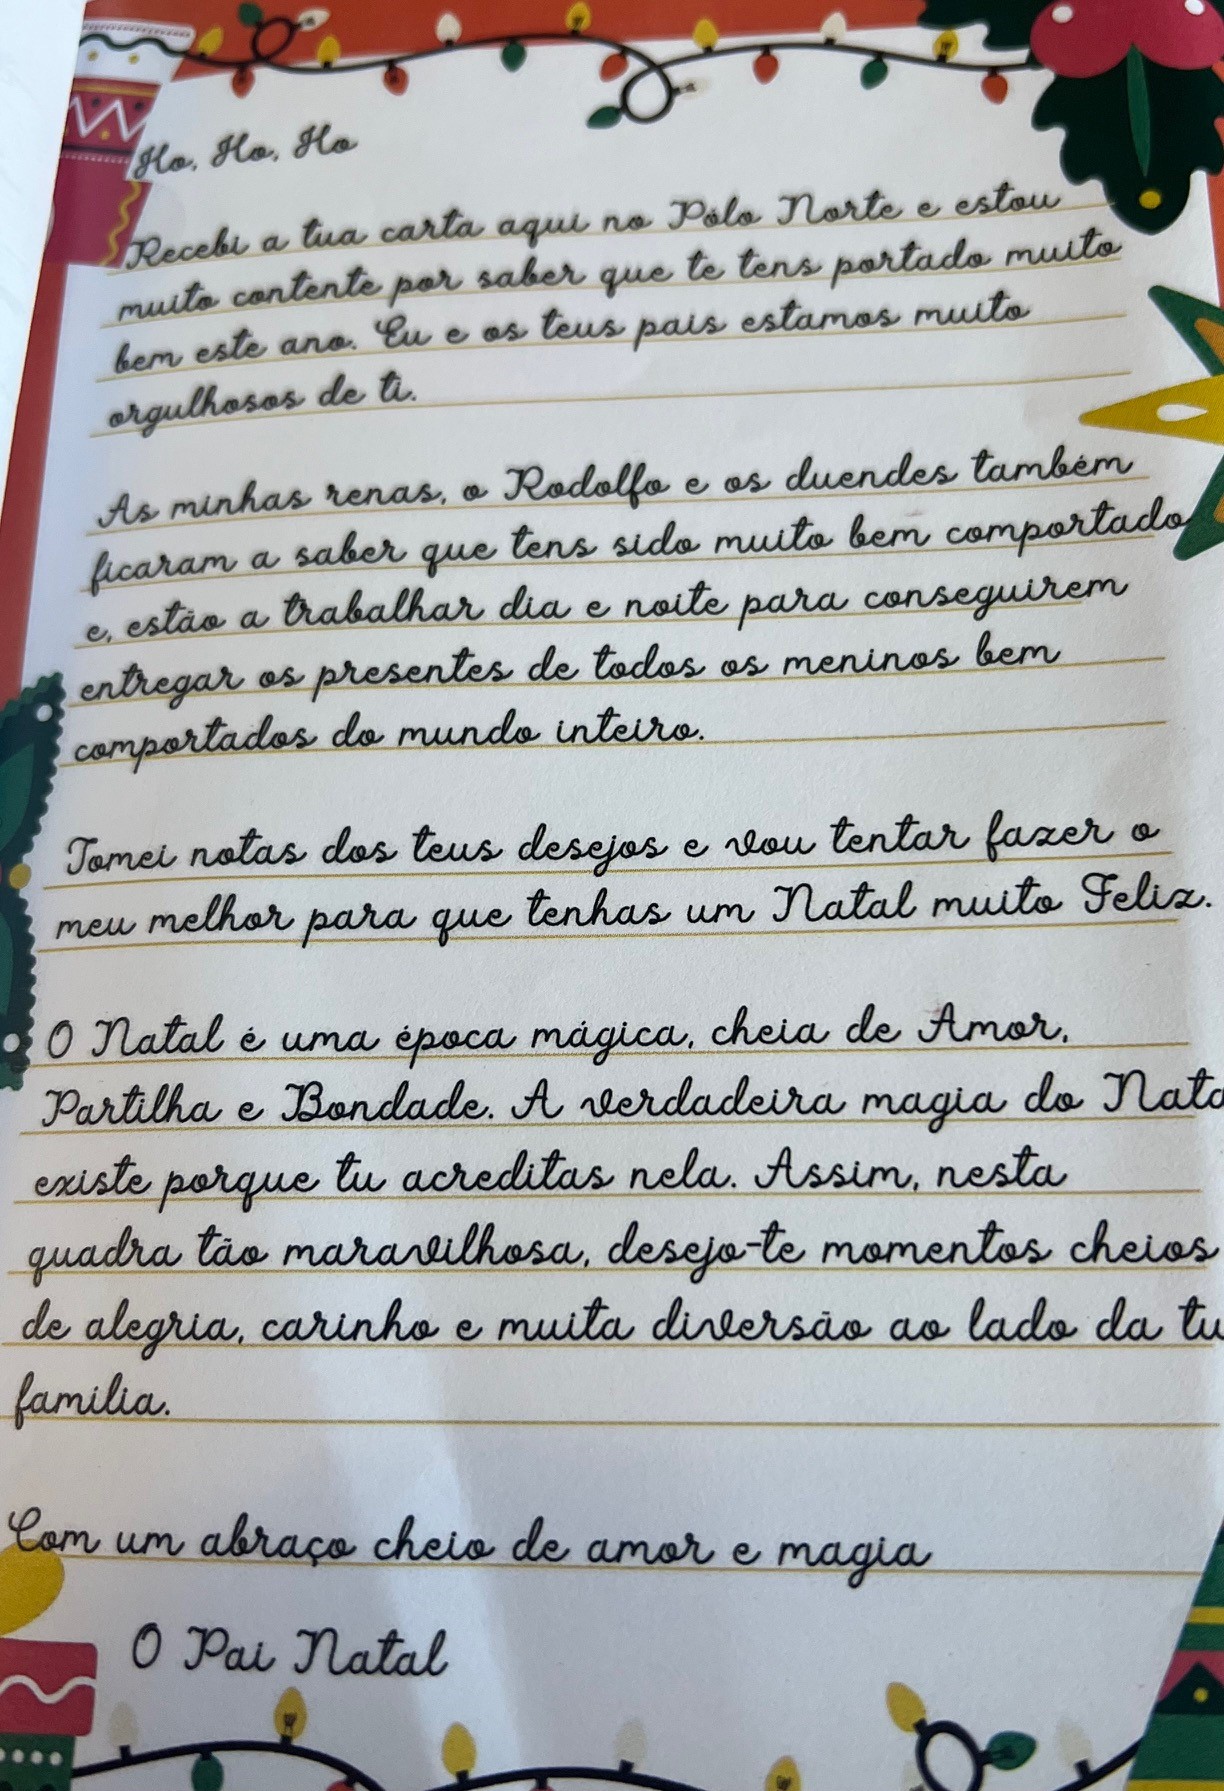 Ho, Ho, Ho
Recebi a tua carta aqui no Pólo Norte e estou
muito contente por saber que te tens portado muito
bem este ano. Eu e os teus pais estamos muito
orgulhosos de ti.
As minhas renas, o Rodolfo e os duendes também
ficaram a saber que tens sido muito bem comportado
e, estão a trabalhar dia e noite para conseguirem
entregar os presentes de todos os meninos bem
comportados do mundo inteiro.
Tomei notas dos teus desejos e vou tentar fazer o
meu melhor para que tenhas um Natal muito Feliz.
O Natal é uma época mágica, cheia de Amor,
Partilha e Bondade. A verdadeira magia do Nata
existe porque tu acreditas nela. Assim, nesta
quadra tão maravilhosa, desejo-te momentos cheios
de alegria, carinho e muita diversão ao lado da tu
família.
Com um abraço cheio de amor e magia
O Pai Natal